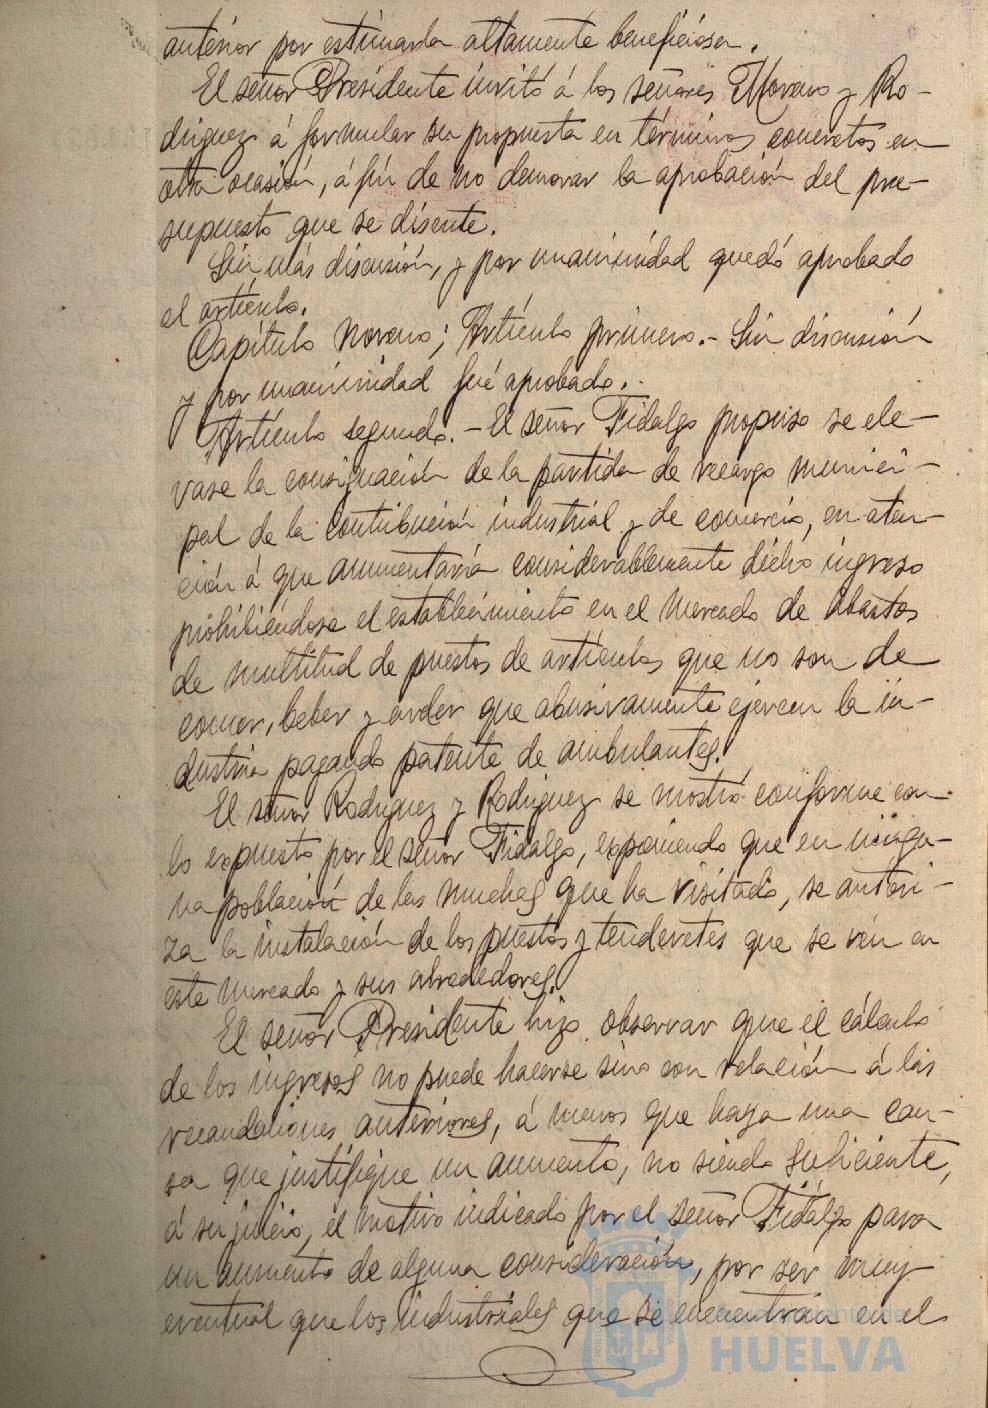 anterior por estimarla altamente beneficiosa.
El señor Presidente invitó á los señores Moreno y Ro-
driguez á formular su propuesta en términos concretos en
otra ocasión, á fin de no demorar la aprobación del pre-
supuesto que se discute.
Sin más discusión, y por unanimidad quedó aprobado
el artículo.
Capítulo Noveno; Artículo primero.- Sin discusión
y por unanimidad fué aprobado.
Artículo segundo.- El señor Fidalgo propuso se ele-
vase la consignación de la partida de recargo munici-
pal de la contribución industrial y de comercio, en aten-
ción á que aumentaría considerablemente dicho ingreso
prohibiéndose el establecimiento en el Mercado de Abastos
de multitud de puestos de artículos que no son de
comer, beber y arder que abusivamente ejercen la in-
dustria pagando patente de ambulantes.
El señor Rodriguez y Rodriguez se mostró conforme con
lo expuesto por el señor Fidalgo, exponiendo que en ningu-
na población de las muchas que ha visitado, se autori-
za la instalación de los puestos y tenderetes que se ven en
este Mercado y sus alrededores.
El señor Presidente hizo observar que el cálculo
de los ingresos no puede hacerse sino con relación á las
recaudaciones anteriores, á menos que haya una cau-
sa que justifique un aumento, no siendo suficiente,
á su juicio, el motivo indicado por el señor Fidalgo para
un aumento de alguna consideración, por ser muy
eventual que los industriales que se encuentran en el
HUELVA